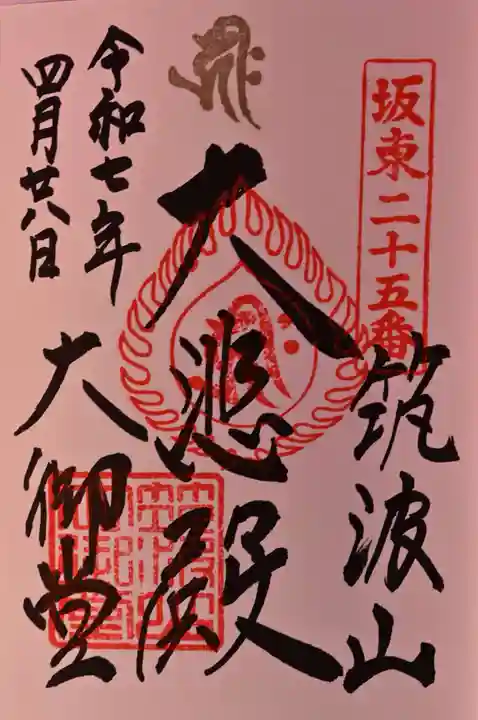 坂東二十五番
筑波山
大悲殿
令和七年
四月廿八日
大御堂